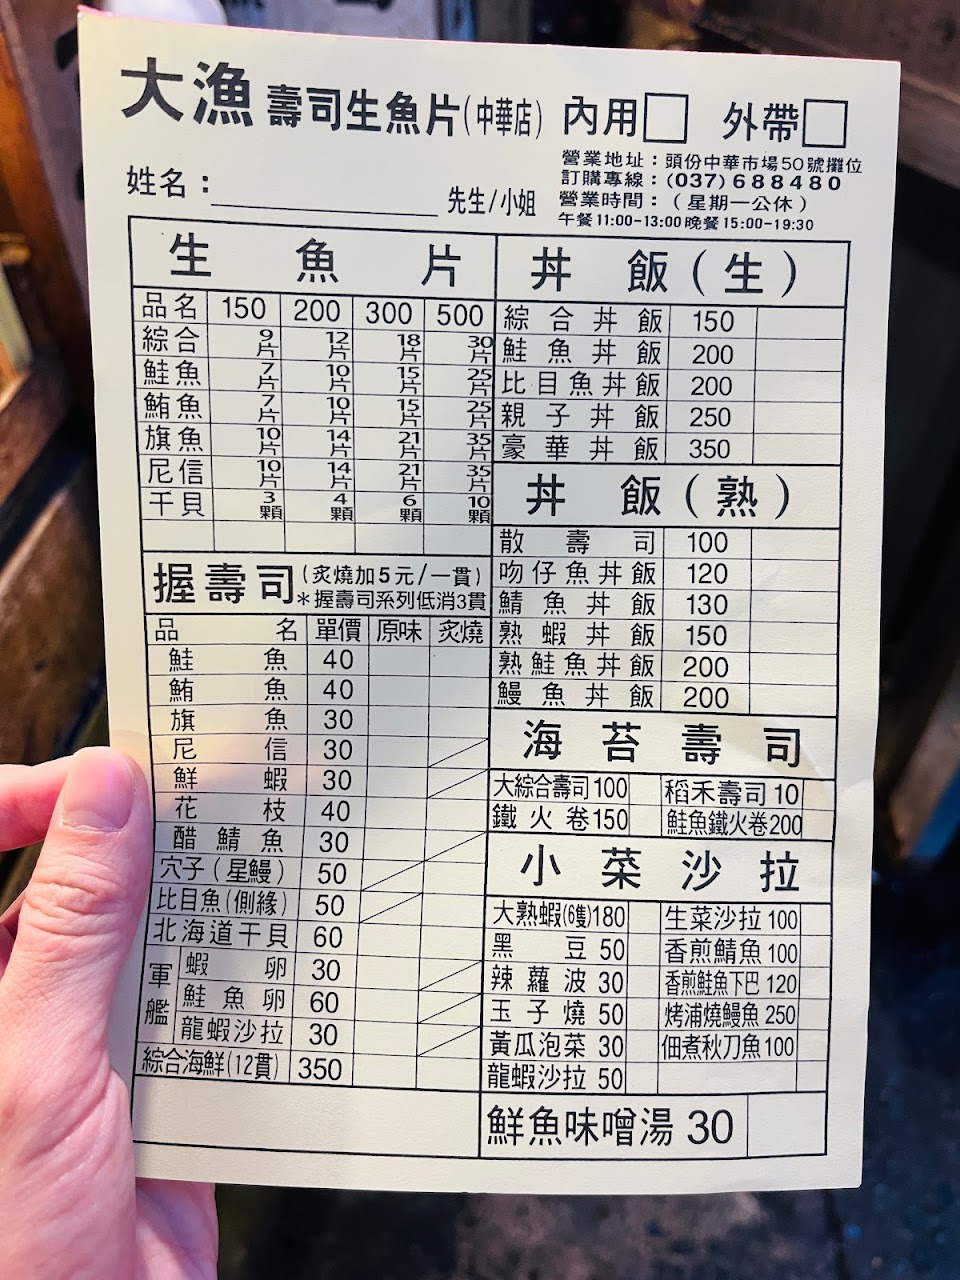 大漁 壽司生魚片(中華店) 內用□ 外帶□
營業地址：頭份中華市場50號攤位
訂購專線：(037)688480
營業時間：(星期一公休)
午餐11:00-13:00晚餐15:00-19:30
姓名：＿＿＿＿＿＿ 先生/小姐
生魚片
品名 150 200 300 500
綜合 9片 12片 18片 30片
鮭魚 7片 10片 15片 25片
鮪魚 7片 10片 15片 25片
旗魚 10片 14片 21片 35片
尼信 10片 14片 21片 35片
干貝 3顆 4顆 6顆 10顆
握壽司(炙燒加5元/一貫)
＊握壽司系列低消3貫
品名 單價 原味 炙燒
鮭魚 40
鮪魚 40
旗魚 30
尼信 30
鮮蝦 30
花枝 40
醋鯖魚 30
穴子(星鰻) 50
比目魚(側緣) 50
北海道干貝 60
軍艦
蝦卵 30
鮭魚卵 60
龍蝦沙拉 30
綜合海鮮(12貫) 350
丼飯(生)
綜合丼飯 150
鮭魚丼飯 200
比目魚丼飯 200
親子丼飯 250
豪華丼飯 350
丼飯(熟)
散壽司 100
吻仔魚丼飯 120
鯖魚丼飯 130
熟蝦丼飯 150
熟鮭魚丼飯 200
鰻魚丼飯 200
海苔壽司
大綜合壽司 100 稻禾壽司 10
鐵火卷 150 鮭魚鐵火卷 200
小菜沙拉
大熟蝦(6隻) 180 生菜沙拉 100
黑豆 50 香煎鯖魚 100
辣蘿波 30 香煎鮭魚下巴 120
玉子燒 50 烤浦燒鰻魚 250
黃瓜泡菜 30 佃煮秋刀魚 100
龍蝦沙拉 50
鮮魚味噌湯 30